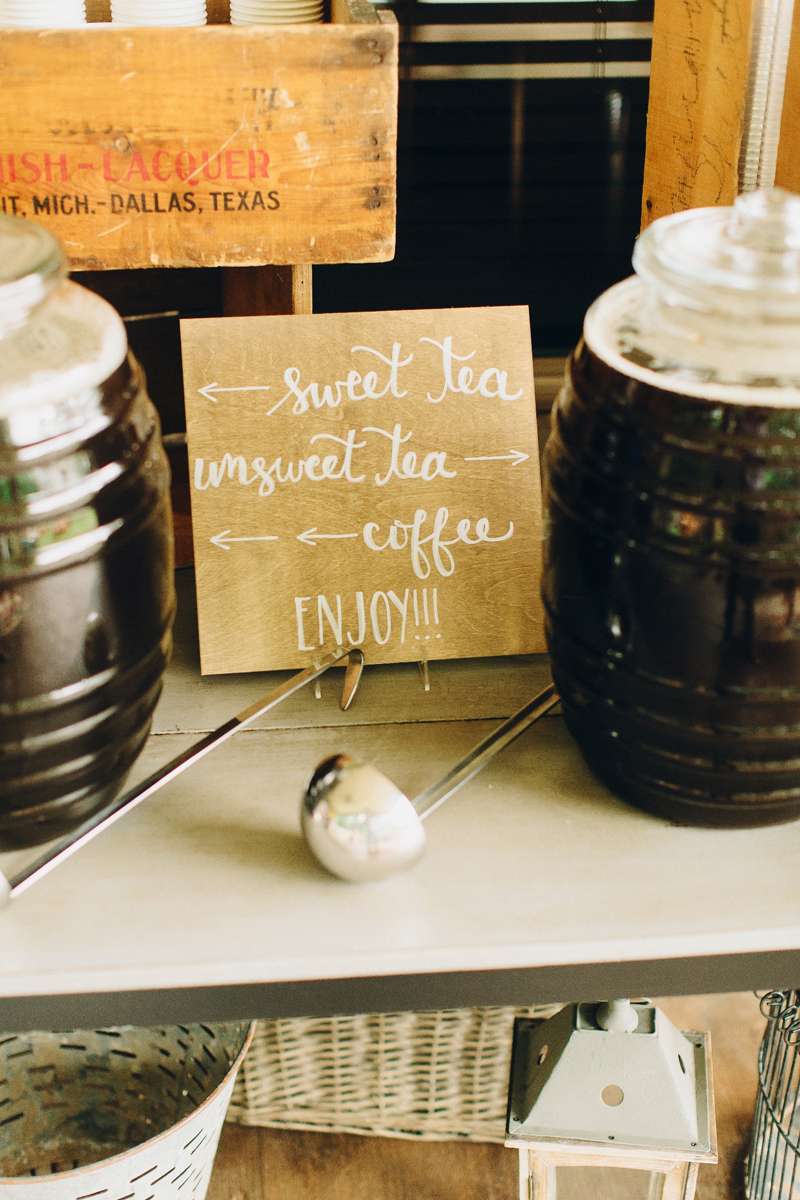 NISH-LACQUER
IT, MICH.-DALLAS, TEXAS
← sweet tea
unsweet tea →
← ← coffee
ENJOY!!!